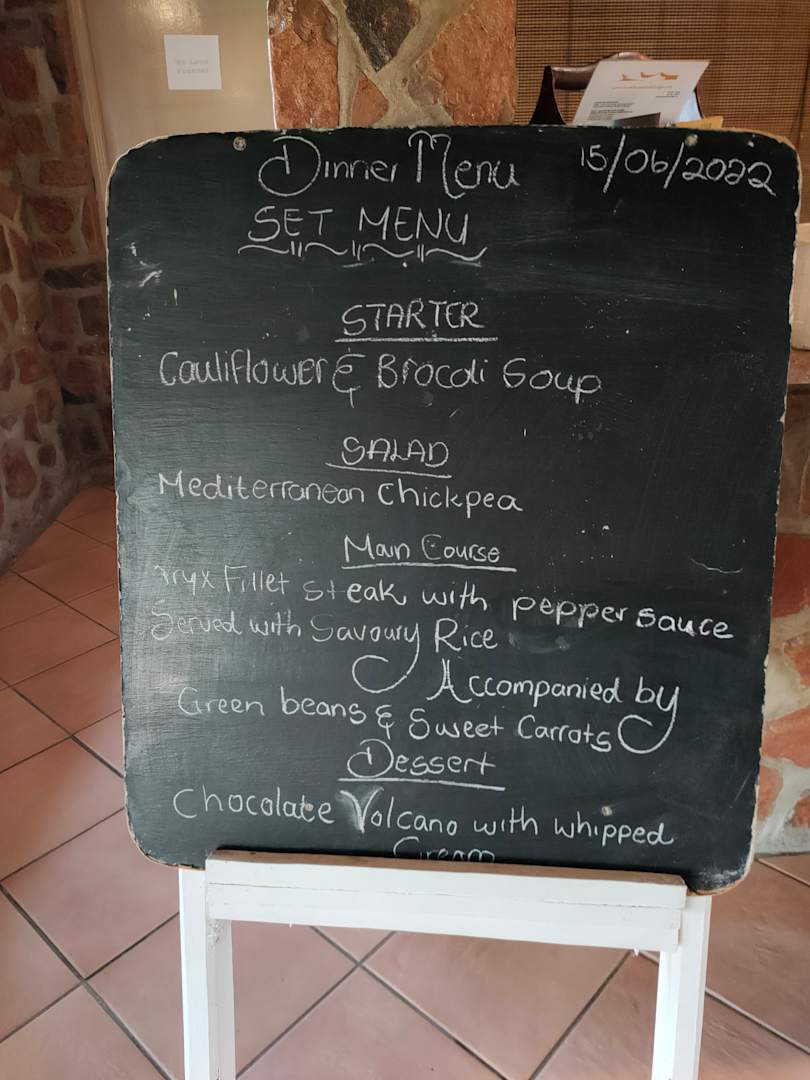 Dinner Menu 15/06/2022
SET MENU
STARTER
Cauliflower & Brocoli Soup
SALAD
Mediterranean Chickpea
Main Course
Oryx Fillet steak with pepper sauce
Served with Savoury Rice
Accompanied by
Green beans & Sweet Carrots
Dessert
Chocolate Volcano with whipped
Cream